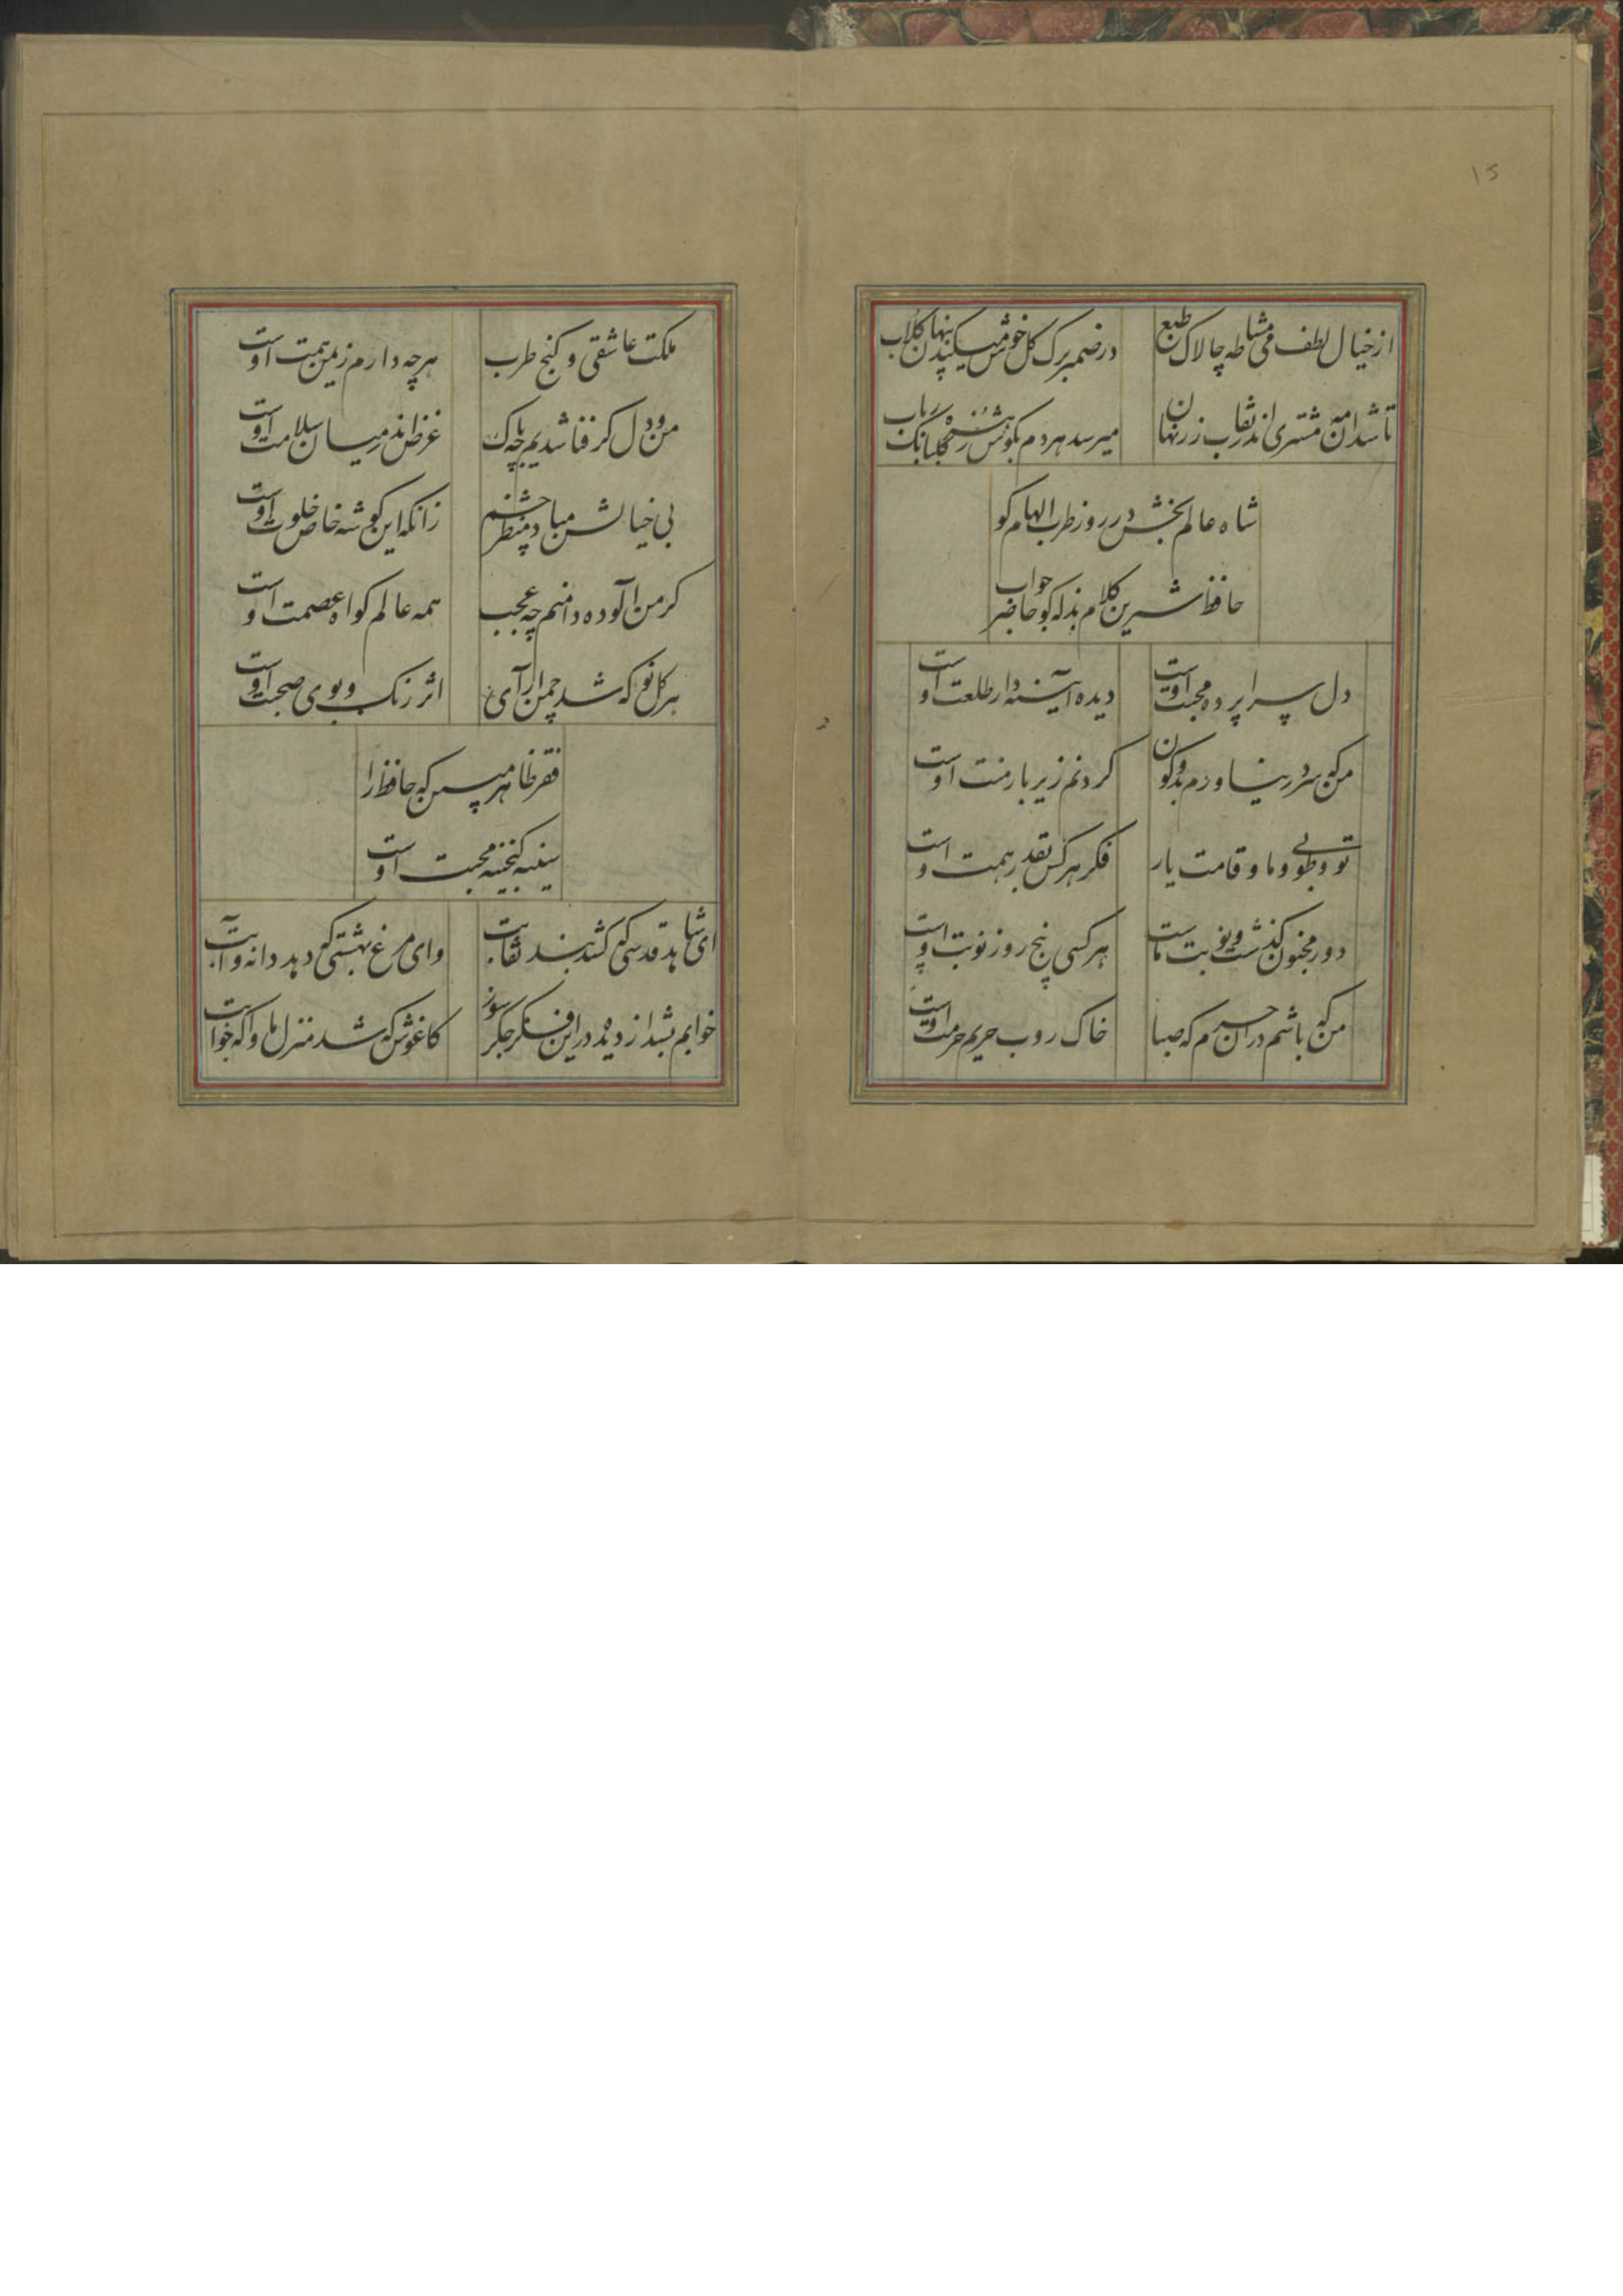 ۱۵
از خیال لطف می مشاطه چالاک طبع
در ضمیر برک کل خوش میکند پنهان کلاب
تا شد آن مه مشتری
میرسد هردم بکوش زهره کلبانک رباب
شاه عالم بخش در روز طرب الهام کو
حافظ شیرین کلام بذله کو حاضر جواب
دل سراپرده محبت اوست
دیده آیینه دار طلعت اوست
من که سر در نیاورم بدو کون
کردنم زیر بار منت اوست
تو و طوبی و ما و قامت یار
فکر هر کس بقدر همت اوست
دور مجنون کذشت و نوبت ماست
هر کسی پنج روز نوبت اوست
من که باشم در آن حرم که صبا
خاک روب حریم حرمت اوست
ملکت عاشقی و کنج طرب
هرچه دارم ز یمن همت اوست
من و دل کر فنا شدیم چه باک
غرض اندر میان سلامت اوست
بی خیالش مباد منظر چشم
زانکه این کوشه خاص خلوت اوست
کر من آلوده دامنم چه عجب
همه عالم کواه عصمت اوست
هر کل نو که شد چمن آرای
اثر رنک و بوی صحبت اوست
فقر ظاهر مبین که حافظ را
سینه کنجینه محبت اوست
ای شاهد قدسی که کشد بند نقابت
وای مرغ بهشتی که دهد دانه و آبت
خوابم بشد از دیده در این فکر جگر سوز
کاغوش که شد منزل و ماواکه خوابت